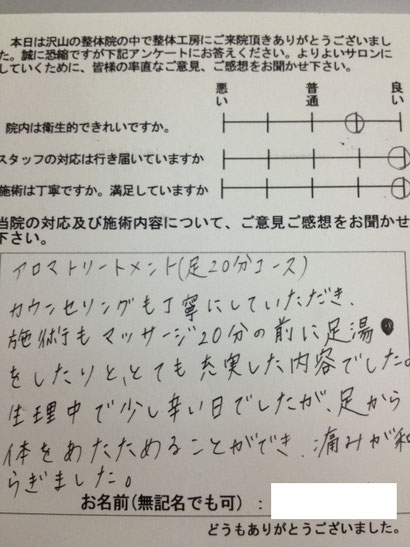 本日は沢山の整体院の中で整体工房にご来院頂きありがとうございまし
た。誠に恐縮ですが下記アンケートにお答えください。よりよいサロンに
していくために、皆様の率直なご意見、ご感想をお聞かせ下さい。
悪い 普通 良い
院内は衛生的できれいですか。
スタッフの対応は行き届いていますか
施術は丁寧ですか。満足していますか
当院の対応及び施術内容について、ご意見ご感想をお聞かせ
下さい。
アロマトリートメント(足20分コース)
カウンセリングも丁寧にしていただき、
施術もマッサージ20分の前に足湯
をしたりと、とても充実した内容でした。
生理中で少し辛い日でしたが、足から
体をあたためることができ、痛みが和
らぎました。
お名前(無記名でも可)：
どうもありがとうございました。